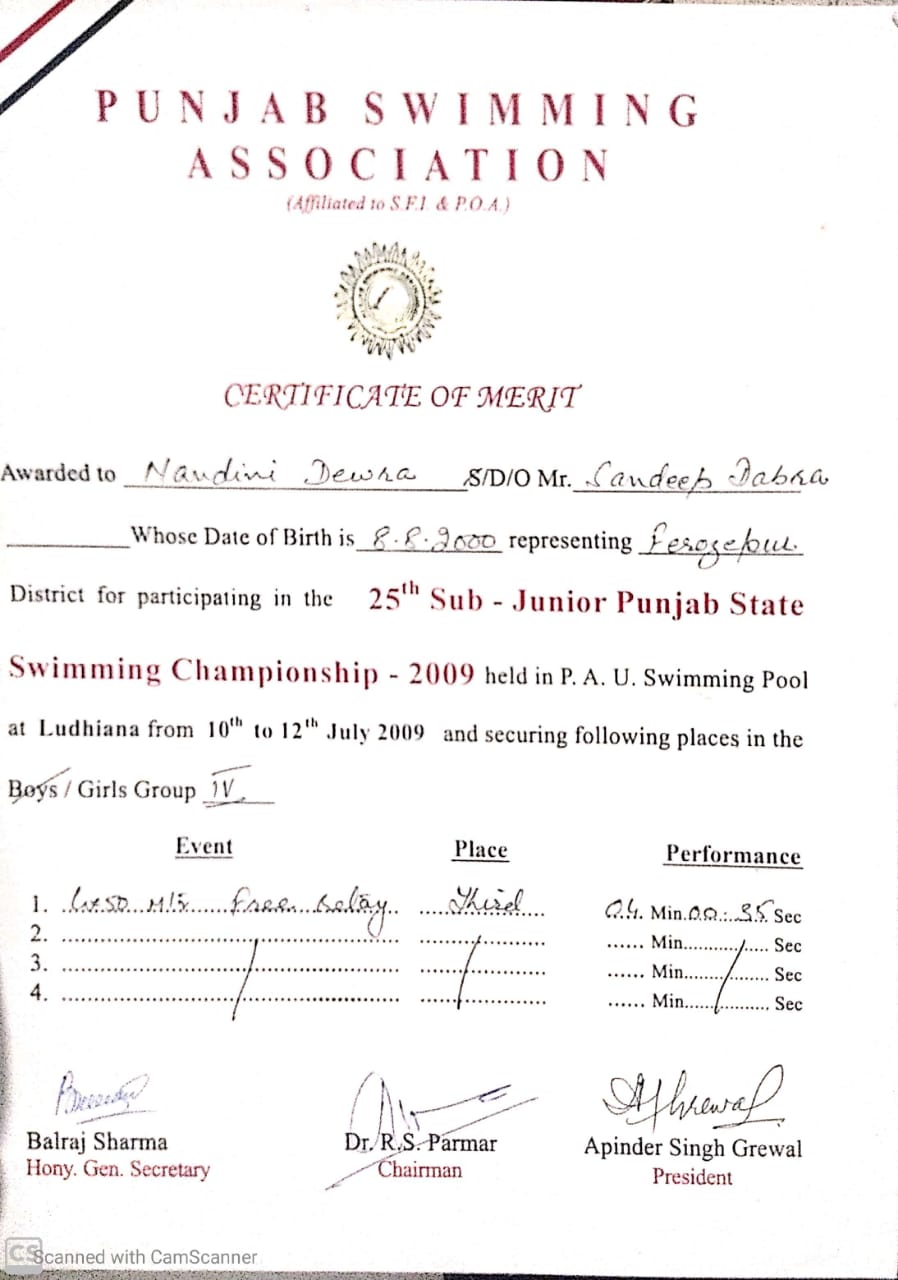 PUNJAB SWIMMING
ASSOCIATION
(Affiliated to S.F.I. & P.O.A.)
CERTIFICATE OF MERIT
Awarded to Nandini Dewra S/D/O Mr. Sandeep Dabra
Whose Date of Birth is 8.8.2000 representing Ferozepur
District for participating in the 25th Sub - Junior Punjab State
Swimming Championship - 2009 held in P. A. U. Swimming Pool
at Ludhiana from 10th to 12th July 2009 and securing following places in the
Boys / Girls Group IV
Event Place Performance
1. 4x50 Mts Free Relay Third 04 Min. 00:35 Sec
2. Min. Sec
3. Min. Sec
4. Min. Sec
Balraj Sharma Dr. R.S. Parmar Apinder Singh Grewal
Hony. Gen. Secretary Chairman President
CS Scanned with CamScanner